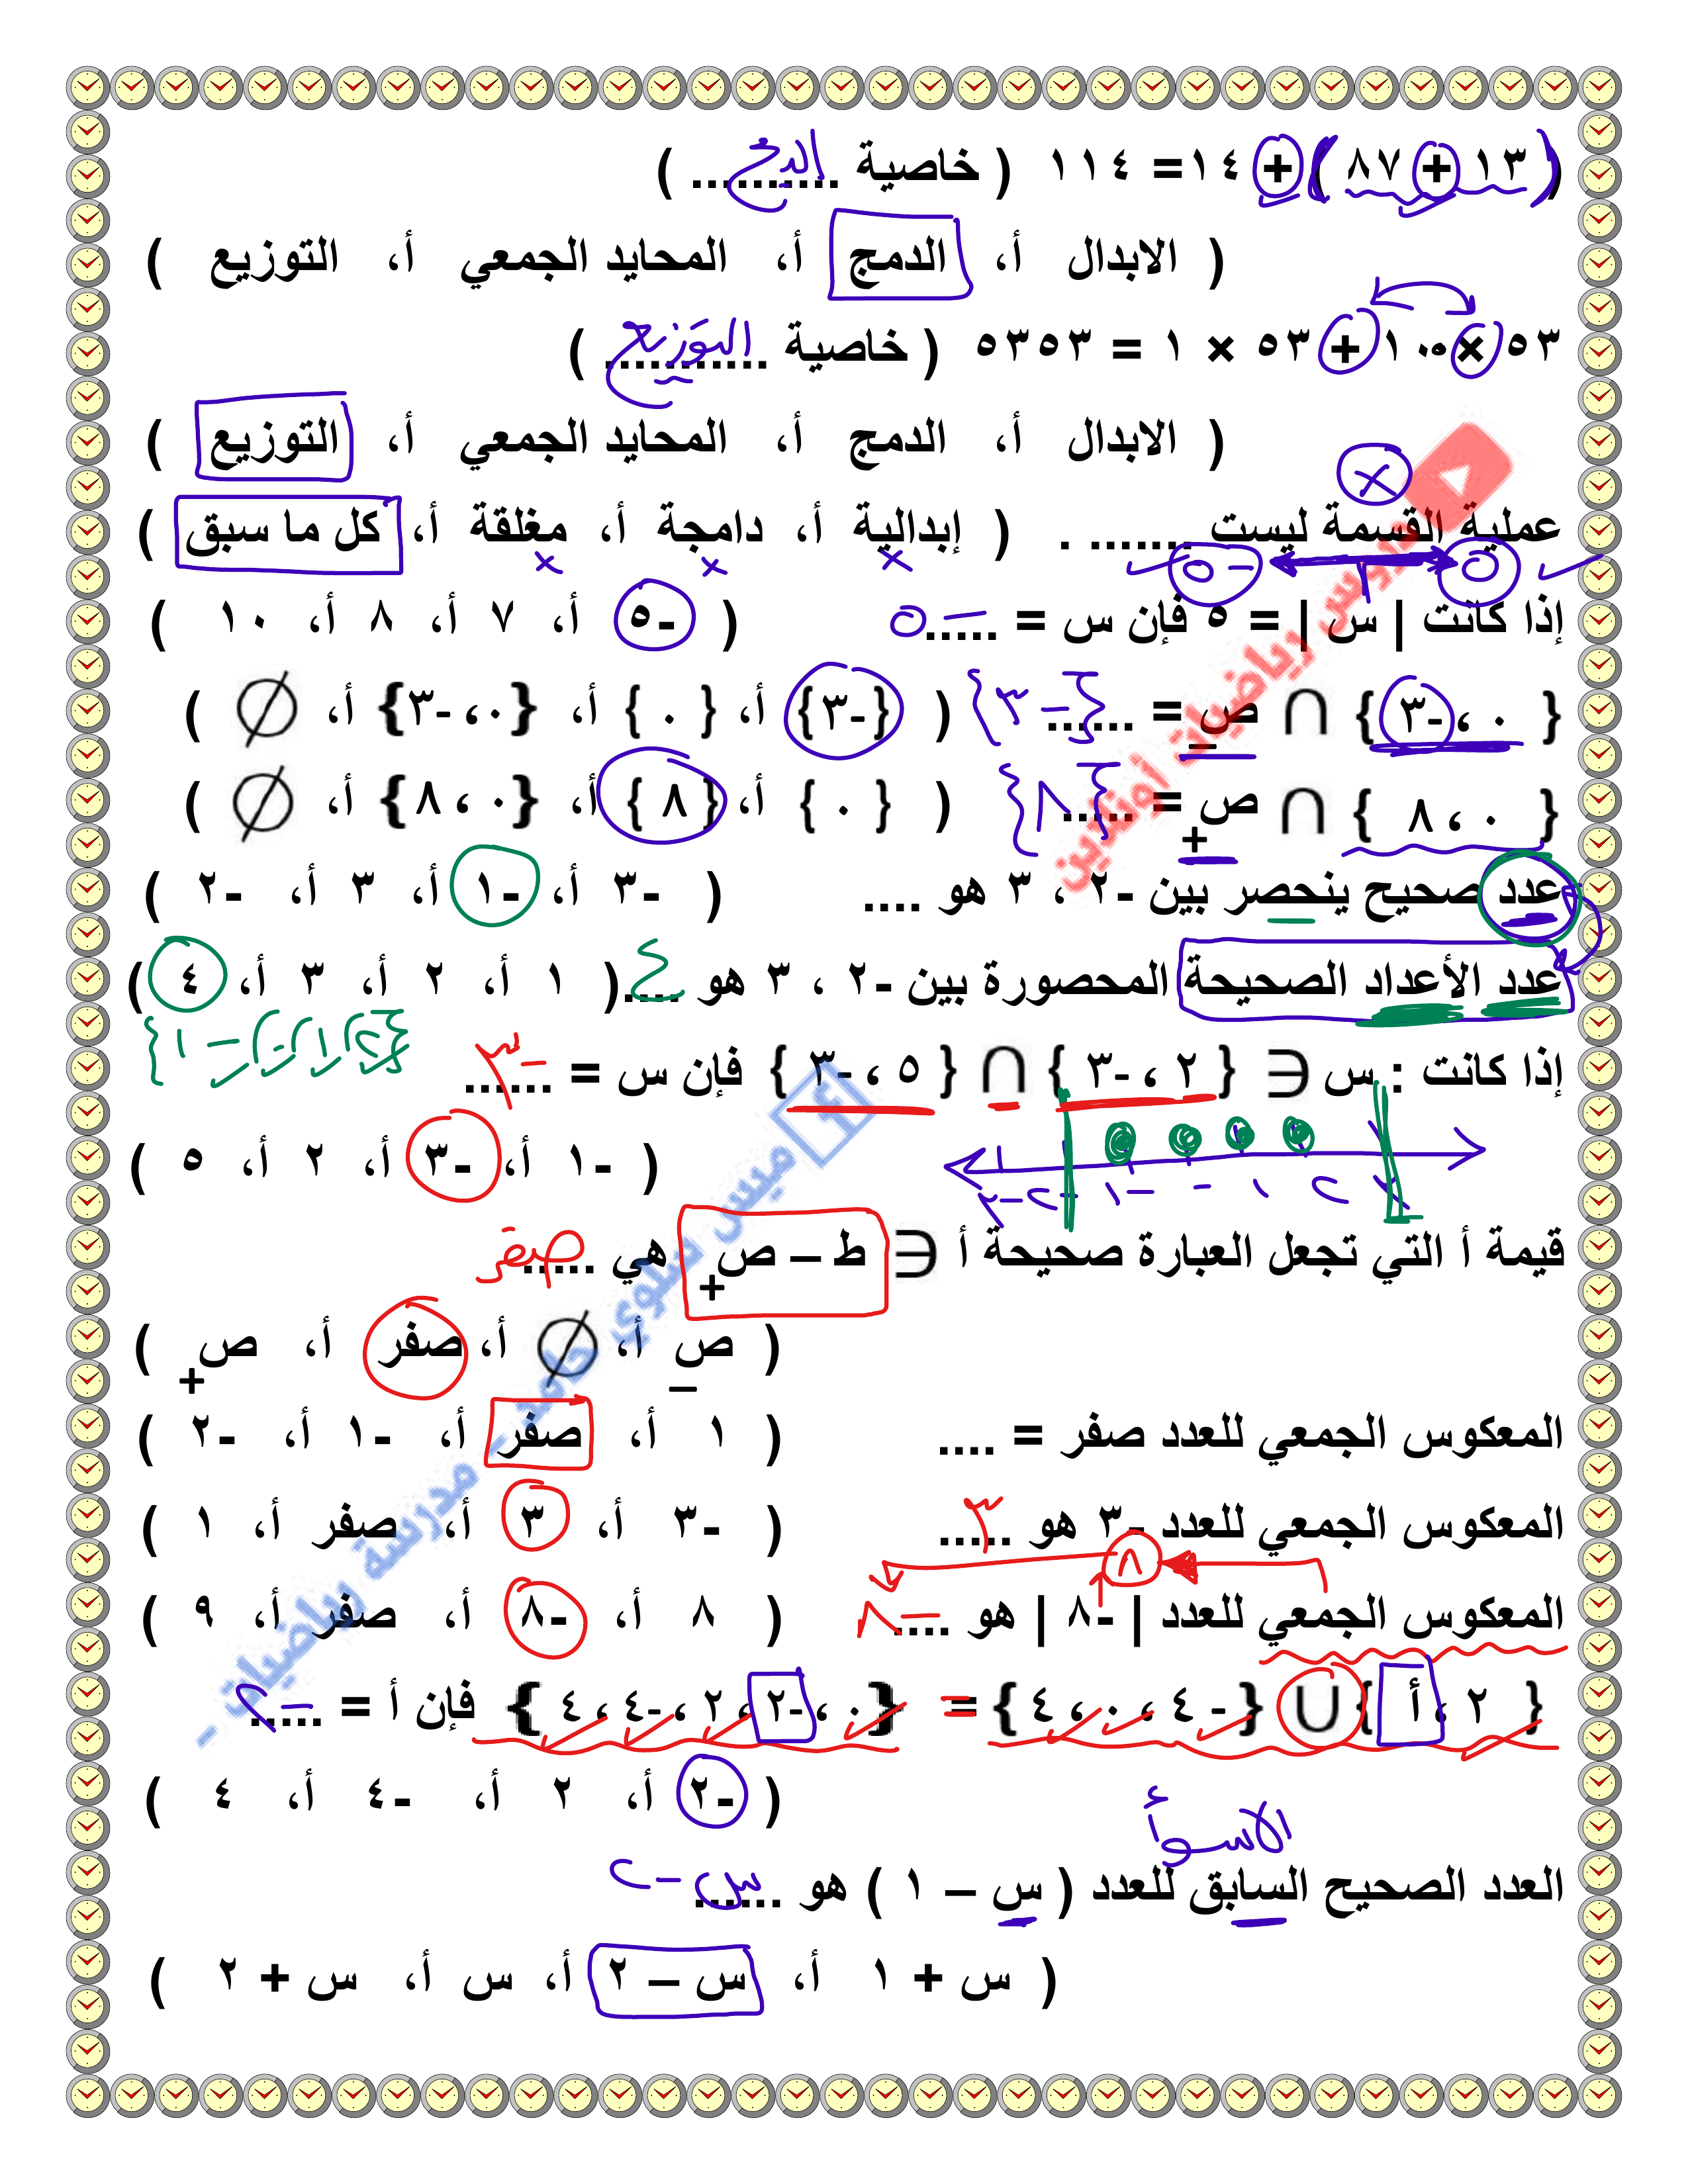 ( ١٣ + ٨٧ ) + ١٤ = ١١٤ ( خاصية .......... ) الدمج
( الابدال أ، الدمج أ، المحايد الجمعي أ، التوزيع )
٥٣ × ١٠٠ + ٥٣ × ١ = ٥٣٥٣ ( خاصية ........... ) التوزيع
( الابدال أ، الدمج أ، المحايد الجمعي أ، التوزيع )
×
عملية القسمة ليست ....... . ( إبدالية أ، دامجة أ، مغلقة أ، كل ما سبق )
× × ×
٥ -٥
إذا كانت | س | = ٥ فإن س = ..... -٥ ( -٥ أ، ٧ أ، ٨ أ، ١٠ )
{ ٠ ، -٣ } ∩ ص_ = ...... {-٣} ( {-٣} أ، { ٠ } أ، {٠، -٣} أ، ∅ )
{ ٠ ، ٨ } ∩ ص+ = ..... {٨} ( { ٠ } أ، { ٨ } أ، {٠ ، ٨} أ، ∅ )
عدد صحيح ينحصر بين -٢ ، ٣ هو .... ( -٣ أ، -١ أ، ٣ أ، -٢ )
عدد الأعداد الصحيحة المحصورة بين -٢ ، ٣ هو .... ٤ ( ١ أ، ٢ أ، ٣ أ، ٤ )
{٢، ١، ٠، -١}
إذا كانت : س ∈ { ٢ ، -٣ } ∩ { ٥ ، -٣ } فإن س = ...... -٣
( -١ أ، -٣ أ، ٢ أ، ٥ )
-٣ -٢ -١ ٠ ١ ٢ ٣
قيمة أ التي تجعل العبارة صحيحة أ ∈ ط – ص+ هي ..... صفر
( ص_ أ، ∅ أ، صفر أ، ص+ )
المعكوس الجمعي للعدد صفر = .... ( ١ أ، صفر أ، -١ أ، -٢ )
المعكوس الجمعي للعدد -٣ هو ..... ٣ ( -٣ أ، ٣ أ، صفر أ، ١ )
٨
المعكوس الجمعي للعدد | -٨ | هو .... -٨ ( ٨ أ، -٨ أ، صفر أ، ٩ )
{ ٢ ، أ } ∪ {- ٤ ، ٠ ، ٤ } = {٠ ، -٢ ، ٢ ، -٤ ، ٤ } فإن أ = ..... -٢
( -٢ أ، ٢ أ، -٤ أ، ٤ )
الاسوأ
العدد الصحيح السابق للعدد ( س – ١ ) هو ...... س - ٢
( س + ١ أ، س – ٢ أ، س أ، س + ٢ )
دروس رياضيات أونلاين
ميس سلوي حامد - مدرسة رياضيات -